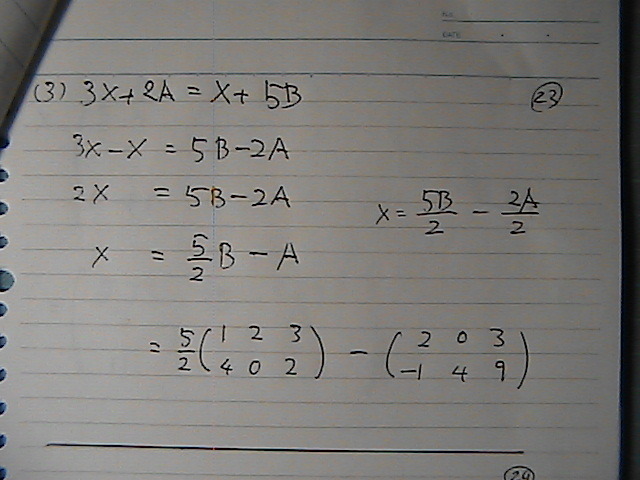 NO.
DATE . .
(3) 3X+2A = X+ 5B
23
3x-X = 5B-2A
2X = 5B-2A
X = 5B/2 - 2A/2
X = 5/2 B - A
= 5/2 ( 1 2 3 ) - ( 2 0 3 )
( 4 0 2 ) ( -1 4 9 )
24